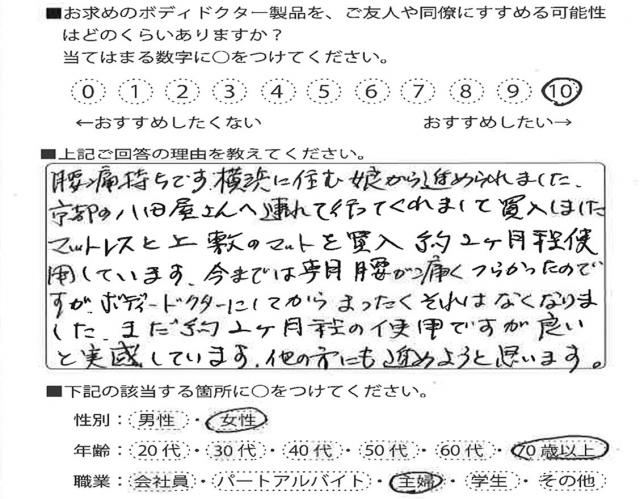 ■お求めのボディドクター製品を、ご友人や同僚にすすめる可能性
はどのくらいありますか？
当てはまる数字に○をつけてください。
0 1 2 3 4 5 6 7 8 9 10
←おすすめしたくない おすすめしたい→
■上記ご回答の理由を教えてください。
腰痛持ちです。横浜に住む娘から進められました。
京都の八田屋さんへ連れて行ってくれまして買入しました
マットレスと上敷のマットを買入 約2ヶ月程使
用しています。今までは毎月腰が痛くつらかったので
すが、ボディードクターにしてからまったくそれはなくなりま
した。まだ約2ヶ月程の使用ですが良い
と実感しています。他の方にも進めようと思います。
■下記の該当する箇所に○をつけてください。
性別：男性・女性
年齢：20代・30代・40代・50代・60代・70歳以上
職業：会社員・パートアルバイト・主婦・学生・その他